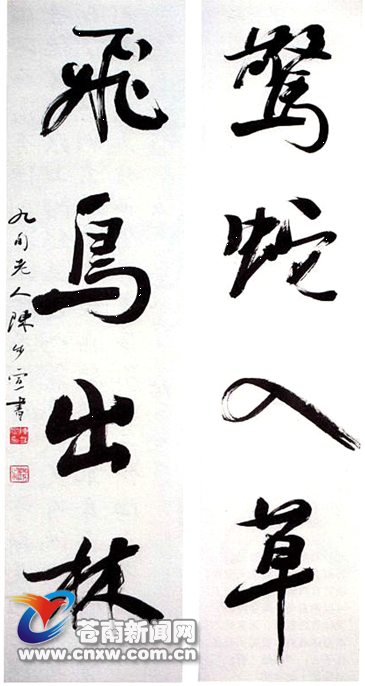 驚蛇入草
飛鳥出林
九旬老人陳少宣書
苍南新闻网
www.cnxw.com.cn